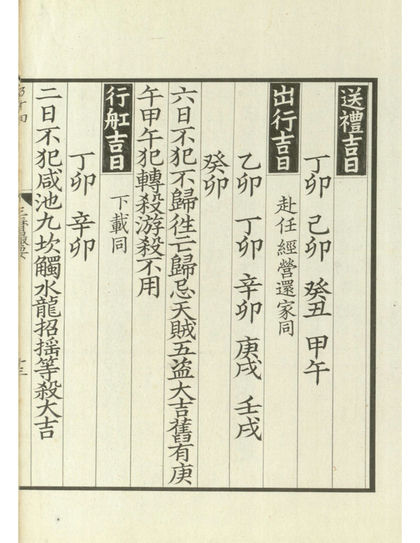 送禮吉日
丁卯 己卯 癸丑 甲午
出行吉日 赴任 經營還家同
乙卯 丁卯 辛卯 庚戌 壬戌
癸卯
六日不犯不歸徃亡歸忌天賊五盜大吉舊有庚
午甲午犯轉殺游殺不用
行舡吉日 下載同
丁卯 辛卯
二日不犯咸池九坎觸水龍招揺等殺大吉